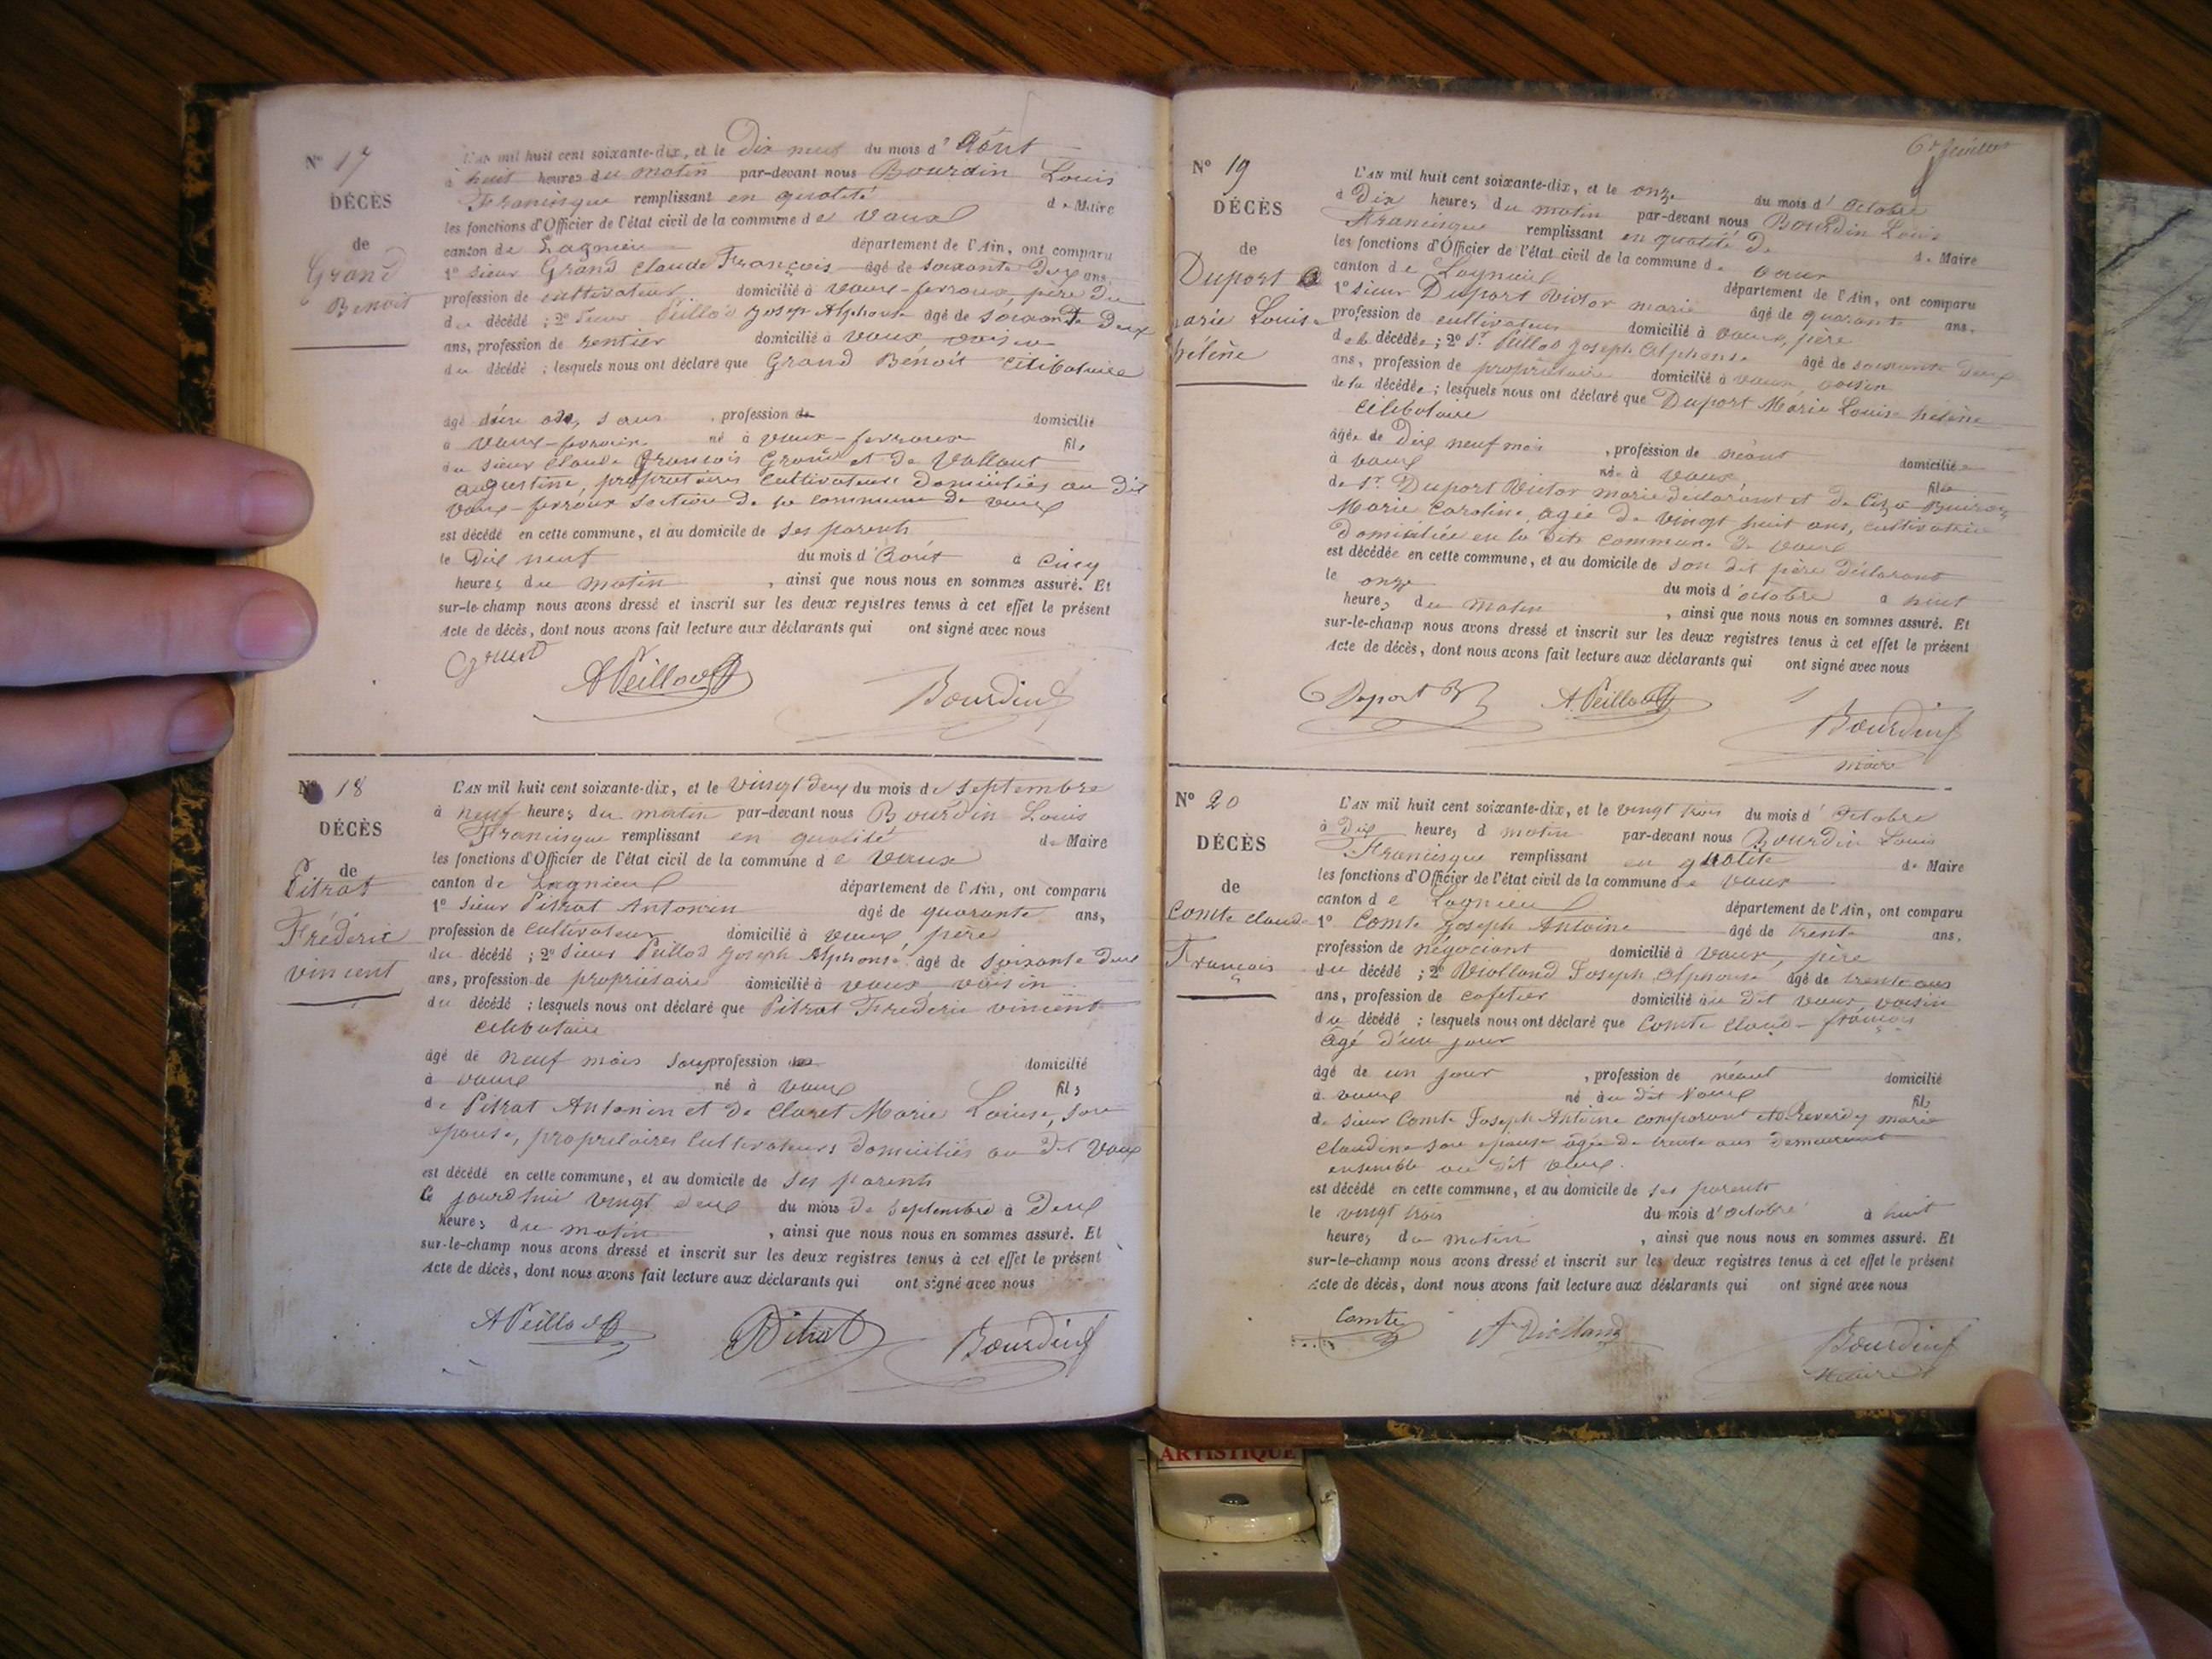 N° 17
DÉCÈS
de
Grand
Benoit
L'AN mil huit cent soixante-dix, et le Dix neuf du mois d' Août
à huit heures du matin par-devant nous Bourdin Louis
Francisque remplissant en qualité de Maire
les fonctions d'Officier de l'état civil de la commune de Vaux
canton de Lagnieu département de l'Ain, ont comparu
1° sieur Grand Claude François âgé de soixante Deux ans,
profession de cultivateur domicilié à Vaux-fevroux, père du
du décédé ; 2° sieur Peillod Joseph Alphonse âgé de soixante Deux
ans, profession de rentier domicilié à Vaux, voisin
du décédé ; lesquels nous ont déclaré que Grand Benoit célibataire
âgé d'un an, sans profession de domicilié
à Vaux-fevroux né à Vaux-fevroux fils
du sieur Claude François Grand et de Vallout
augustine, propriétaires cultivateurs domiciliés au dit
Vaux-fevroux section de la commune de Vaux
est décédé en cette commune, et au domicile de ses parents
le Dix neuf du mois d'Août à cinq
heures du matin , ainsi que nous nous en sommes assuré. Et
sur-le-champ nous avons dressé et inscrit sur les deux registres tenus à cet effet le présent
Acte de décès, dont nous avons fait lecture aux déclarants qui ont signé avec nous
A Peillod Bourdin
N° 18
DÉCÈS
de
Pitrat
Fréderic
vincent
L'AN mil huit cent soixante-dix, et le vingt deux du mois de septembre
à neuf heures du matin par-devant nous Bourdin Louis
Francisque remplissant en qualité de Maire
les fonctions d'Officier de l'état civil de la commune de Vaux
canton de Lagnieu département de l'Ain, ont comparu
1° sieur Pitrat Antonin âgé de quarante ans,
profession de cultivateur domicilié à vaux, père
du décédé ; 2° sieur Peillod Joseph Alphonse âgé de soixante deux
ans, profession de propriétaire domicilié à vaux, voisin
du décédé ; lesquels nous ont déclaré que Pitrat Frederic vincent
célibataire
âgé de neuf mois sans profession domicilié
à vaux né à vaux fils
de Pitrat Antonin et de Claret Marie Louise, son
épouse, propriétaires cultivateurs domiciliés au dit Vaux
est décédé en cette commune, et au domicile de ses parents
Ce jourd'hui vingt deux du mois de septembre à Deux
heures du matin , ainsi que nous nous en sommes assuré. Et
sur-le-champ nous avons dressé et inscrit sur les deux registres tenus à cet effet le présent
Acte de décès, dont nous avons fait lecture aux déclarants qui ont signé avec nous
A Peillod Pitrat Bourdin
6e feuillet
N° 19
DÉCÈS
de
Duport
arie Louise
hélène
L'AN mil huit cent soixante-dix, et le onze du mois d' Octobre
à Dix heures du matin par-devant nous Bourdin Louis
Francisque remplissant en qualité de de Maire
les fonctions d'Officier de l'état civil de la commune de vaux
canton de Lagnieu département de l'Ain, ont comparu
1° sieur Duport Victor marie âgé de quarante ans,
profession de cultivateur domicilié à vaux, père
de la décédée ; 2° Sr Peillod Joseph Alphonse âgé de soixante Deux
ans, profession de propriétaire domicilié à vaux, voisin
de la décédée ; lesquels nous ont déclaré que Duport Marie Louise hélène
célibataire
âgée de Dix neuf mois , profession de néant domiciliée
à vaux née à vaux fille
de Sr Duport Victor marie déclarant et de
Marie Caroline, agée de vingt huit ans, cultivatrice
domiciliée en la dite commune de vaux
est décédée en cette commune, et au domicile de son dit père déclarant
le onze du mois d'octobre à huit
heures du matin , ainsi que nous nous en sommes assuré. Et
sur-le-champ nous avons dressé et inscrit sur les deux registres tenus à cet effet le présent
Acte de décès, dont nous avons fait lecture aux déclarants qui ont signé avec nous
Duport A. Peillod Bourdin
maire
N° 20
DÉCÈS
de
Comte claude
François
L'AN mil huit cent soixante-dix, et le vingt trois du mois d' Octobre
à Dix heures d matin par-devant nous Bourdin Louis
Francisque remplissant en qualité de Maire
les fonctions d'Officier de l'état civil de la commune de vaux
canton de Lagnieu département de l'Ain, ont comparu
1° Comte Joseph Antoine âgé de trente ans,
profession de négociant domicilié à vaux, père
du décédé ; 2° Violland Joseph Alphonse âgé de trente ans
ans, profession de cafetier domicilié au dit vaux, voisin
du décédé ; lesquels nous ont déclaré que Comte Claud-françois
âgé d'un jour
âgé de un jour , profession de néant domicilié
à vaux né au dit Vaux fils
de sieur Comte Joseph Antoine comparant et Reverdy marie
claudine son épouse agée de trente ans demeurant
ensemble au dit vaux.
est décédé en cette commune, et au domicile de ses parents
le vingt trois du mois d'octobre à huit
heures du matin , ainsi que nous nous en sommes assuré. Et
sur-le-champ nous avons dressé et inscrit sur les deux registres tenus à cet effet le présent
Acte de décès, dont nous avons fait lecture aux déclarants qui ont signé avec nous
Comte Violland Bourdin
Maire
ARTISTIQUE